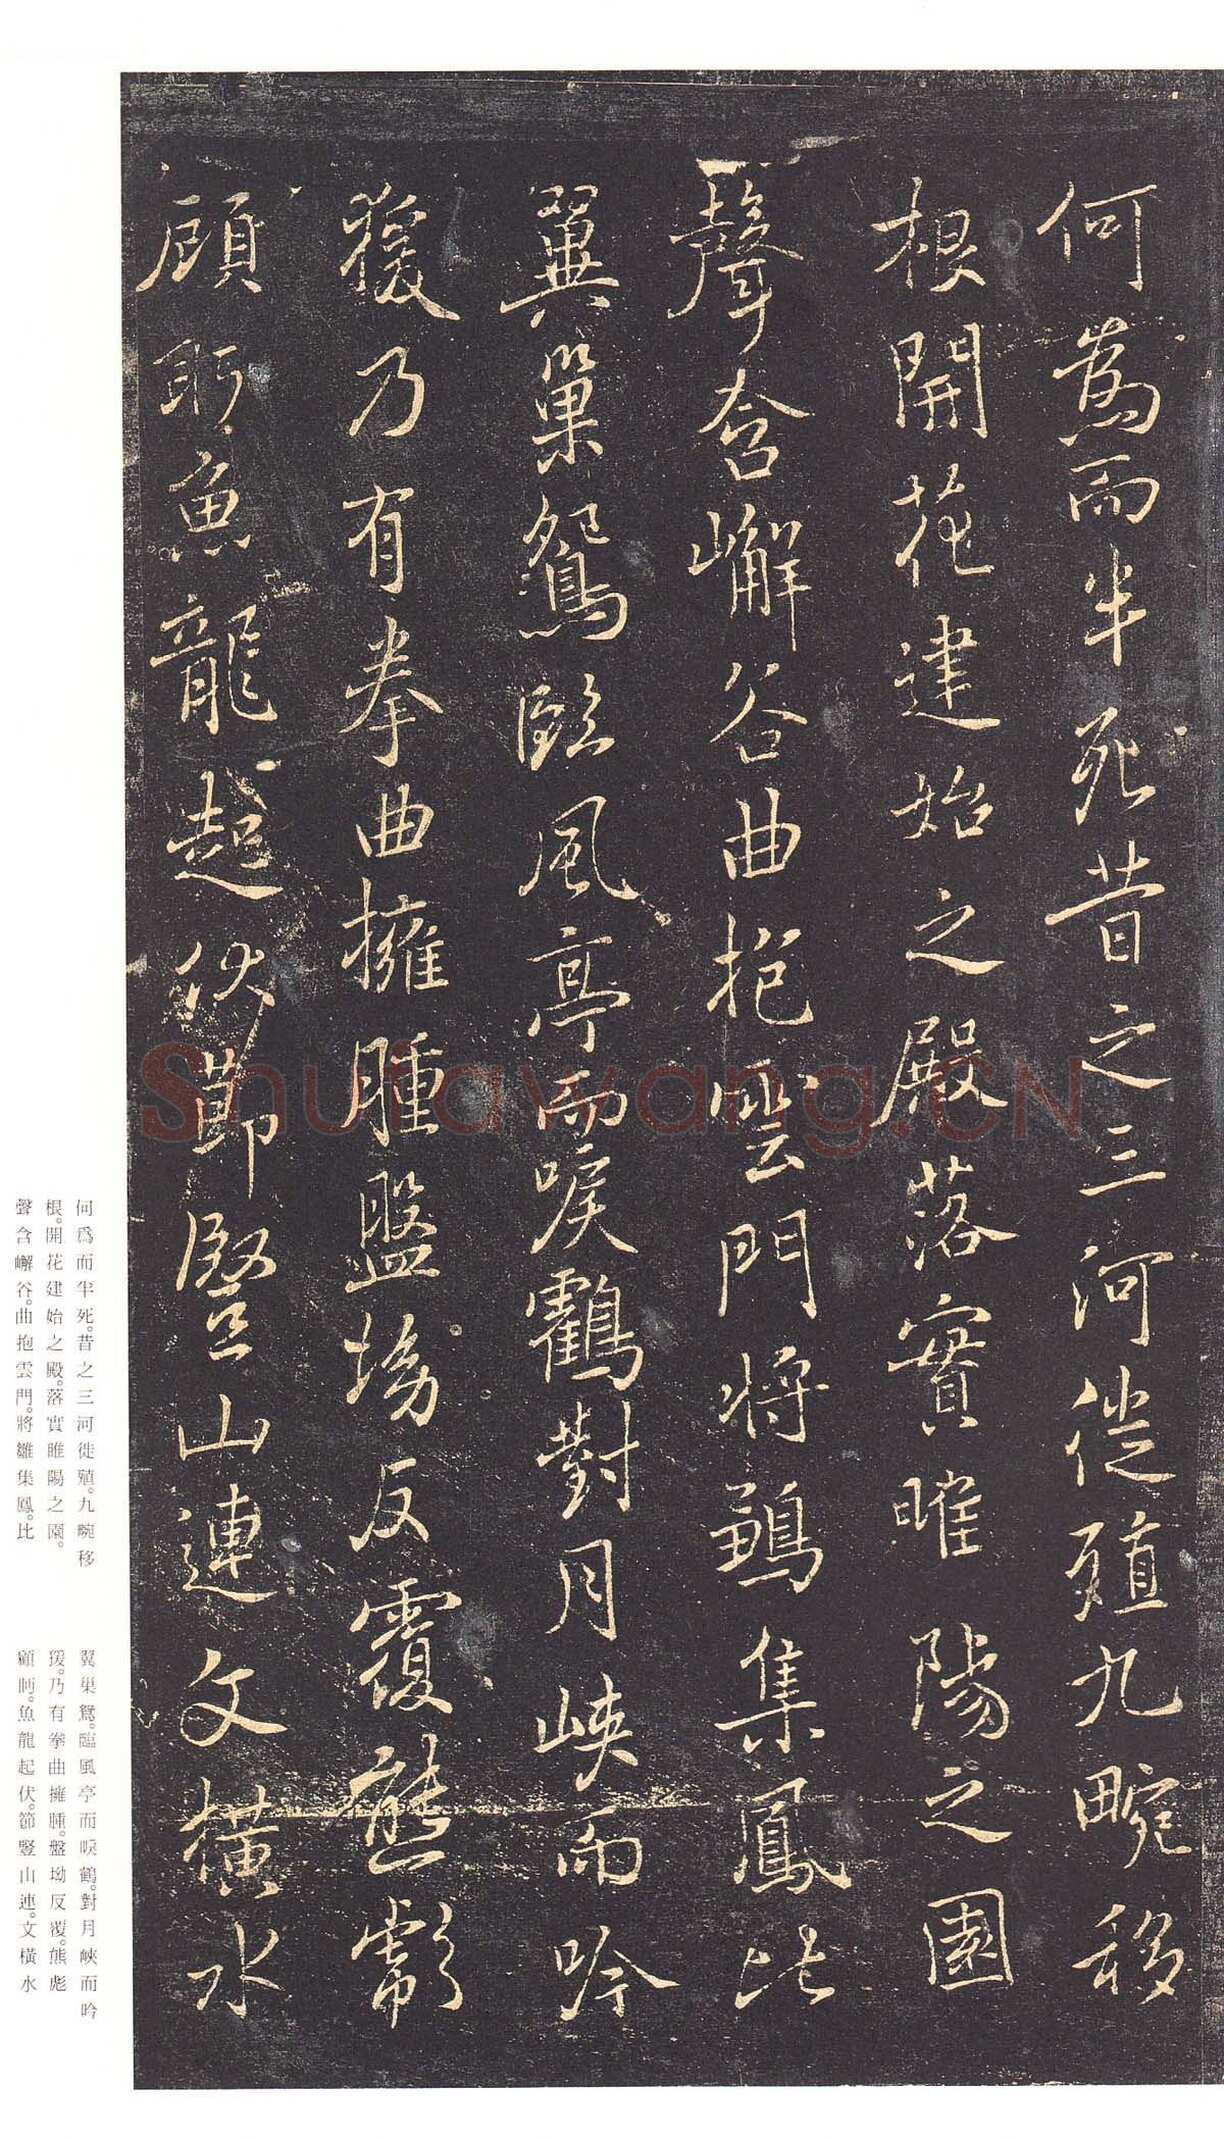 何為而半死昔之三河徙殖九畹移
根開花建始之殿落實睢陽之園
聲含嶰谷曲抱雲門將鶵集鳳比
翼巢鴛臨風亭而唳鶴對月峽而吟
猨乃有拳曲擁腫盤坳反覆熊彪
顧眄魚龍起伏節豎山連文橫水
Shufawang.CN
何爲而半死。昔之三河徙殖。九畹移
根。開花建始之殿。落實睢陽之園。
聲含嶰谷。曲抱雲門。將雛集鳳。比
翼巢鴛。臨風亭而唳鶴。對月峽而吟
猨。乃有拳曲擁腫。盤坳反覆。熊彪
顧眄。魚龍起伏。節豎山連。文橫水